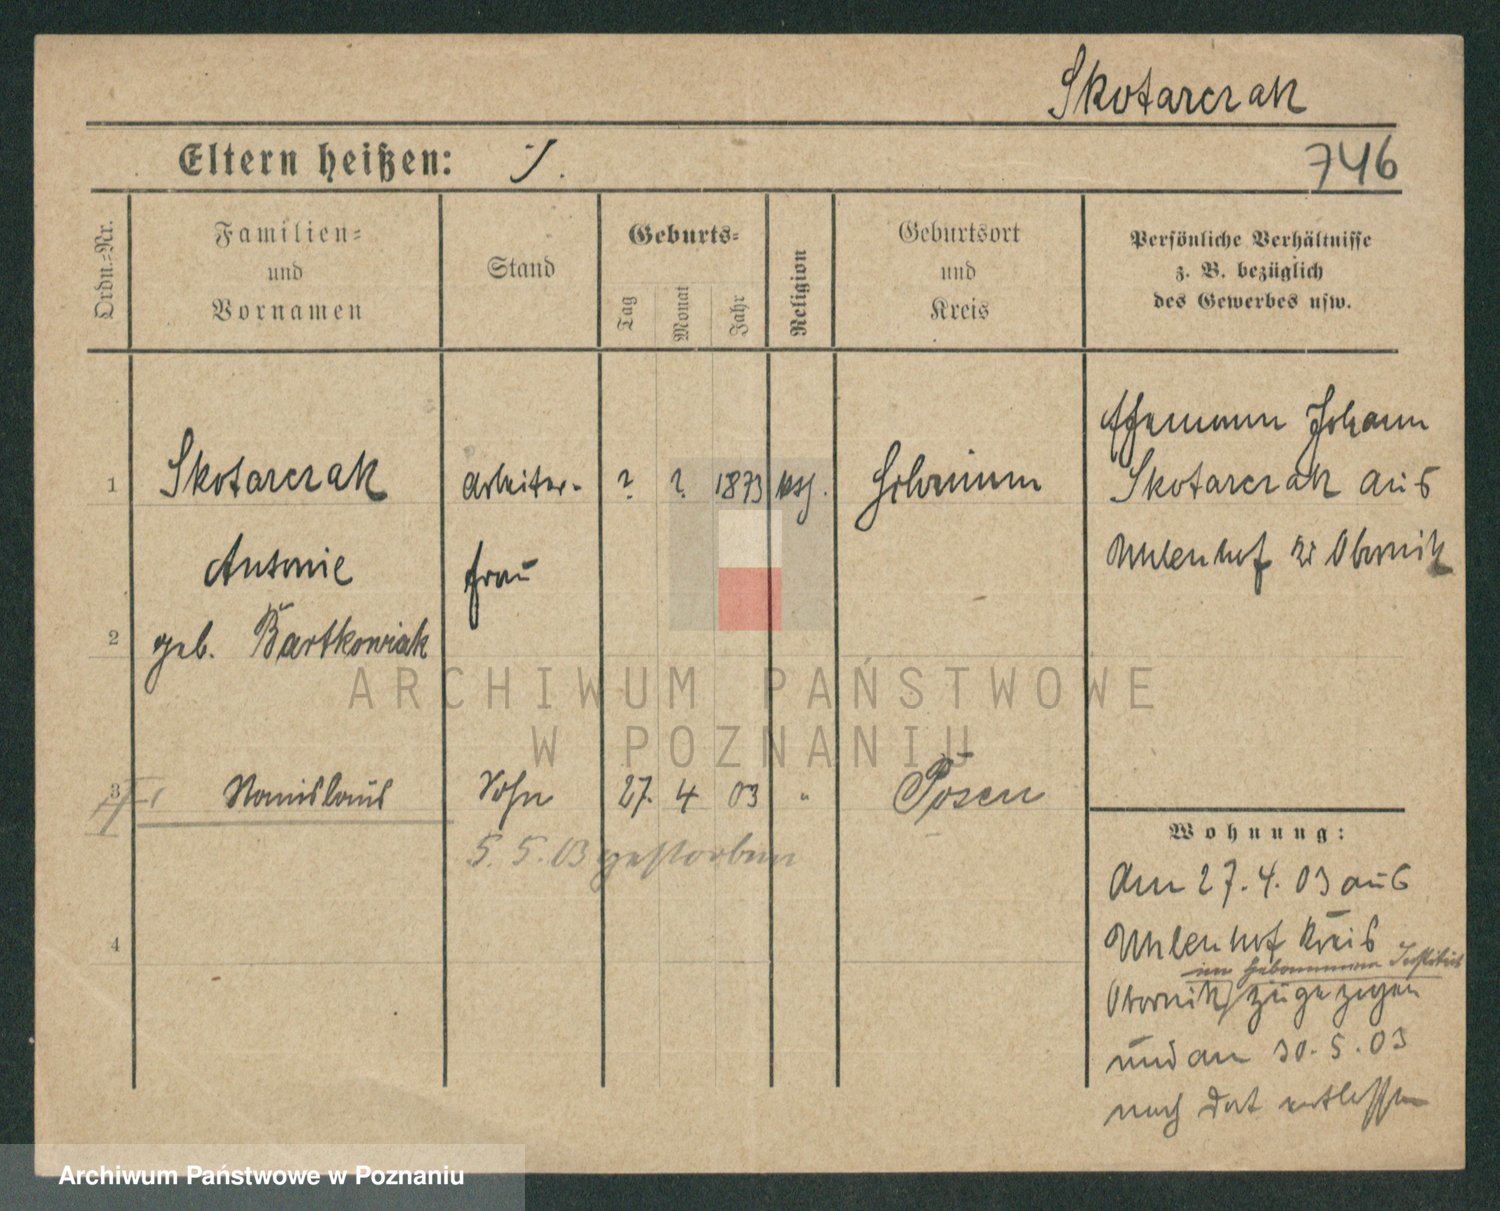 Skotarczak
Eltern heißen: ⁒.
746
Ordn.-Nr.
Familien-
und
Vornamen
Stand
Geburts-
Tag
Monat
Jahr
Religion
Geburtsort
und
Kreis
Persönliche Verhältnisse
z. B. bezüglich
des Gewerbes usw.
Ehemann Johann
1 Skotarczak Arbeiter- ? ? 1873
Skotarczak aus
Antonie frau
Uhlenhof Kr Obornik
2 geb. Bartkowiak
ARCHIWUM PAŃSTWOWE
W POZNANIU
3 Stanislaus Sohn 27. 4 03 " Posen
5. 5. 03 gestorben
Wohnung:
Am 27. 4. 03 aus
4
Uhlenhof Kreis
im Hebammen Institut
Obornik zugezogen
und am 30. 5. 03
nach dort entlassen
Archiwum Państwowe w Poznaniu